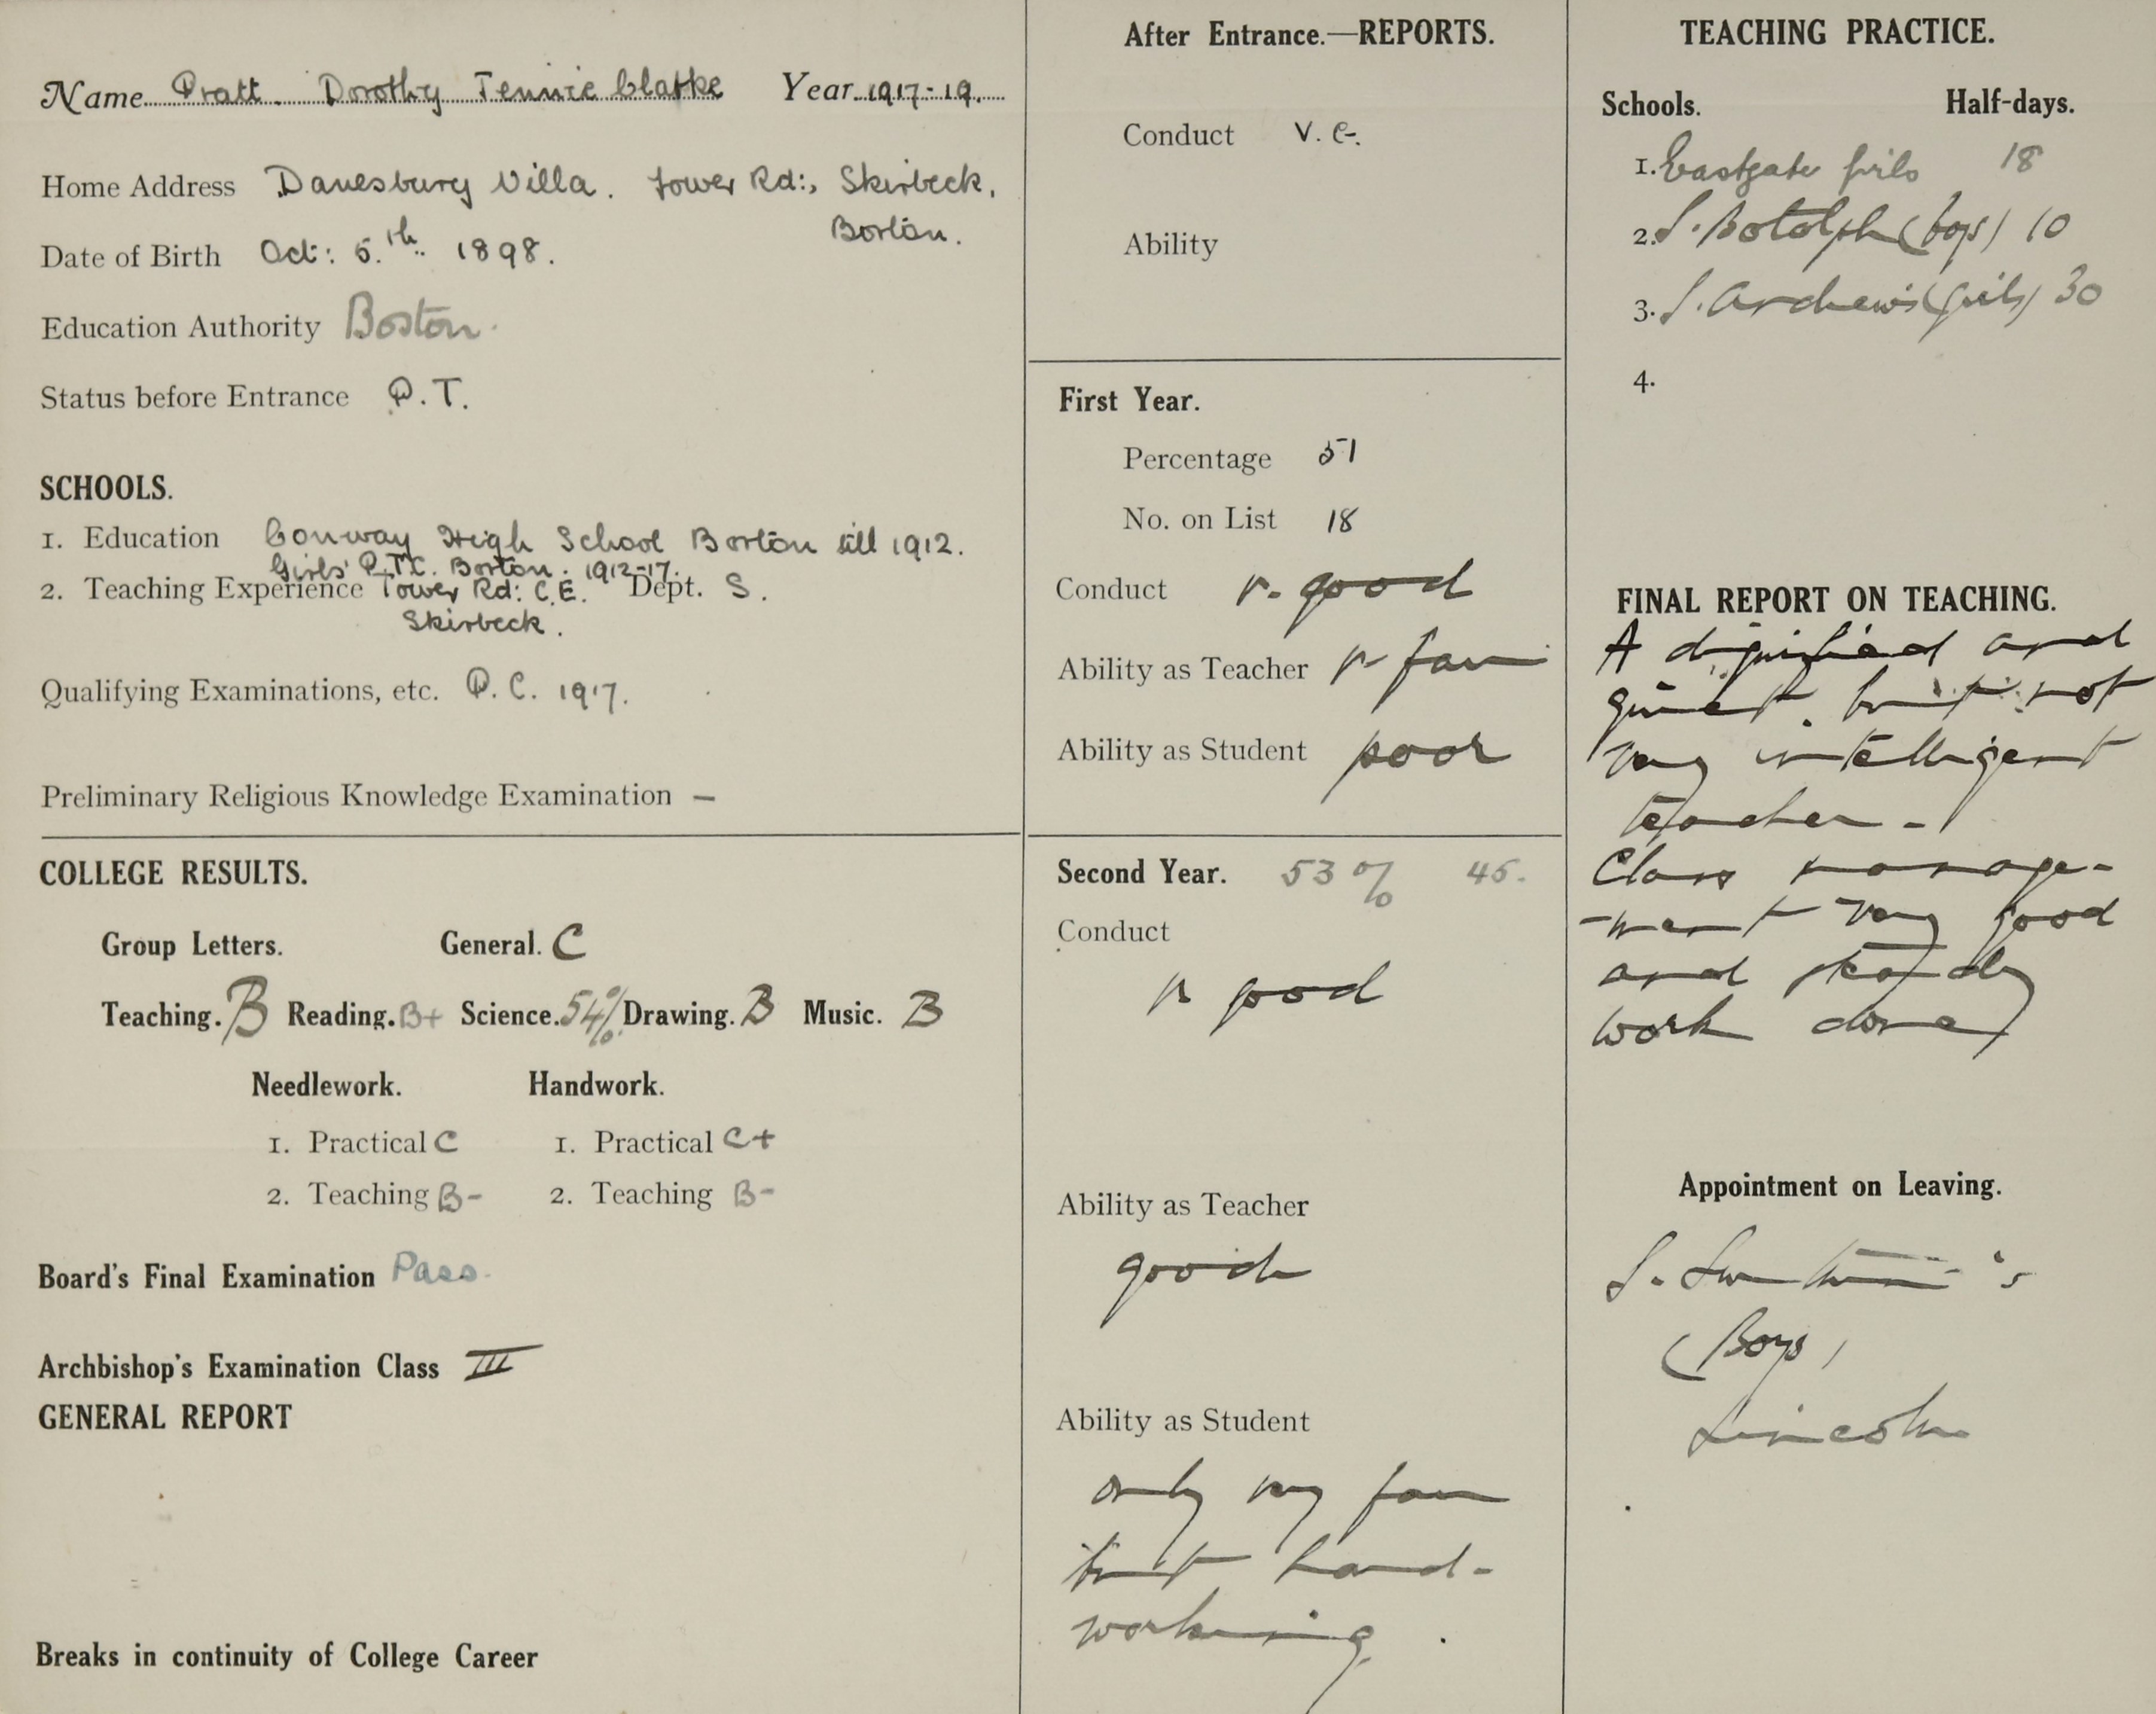 Name Pratt. Dorothy Jennie Clarke Year 1917-19.
Home Address Danesbury Villa. Tower Rd:, Skirbeck,
Boston.
Date of Birth Oct: 5.th 1898.
Education Authority Boston.
Status before Entrance P.T.
SCHOOLS.
1. Education Conway High School Boston till 1912.
Girls' P.T.C. Boston. 1912-17.
2. Teaching Experience Tower Rd: C.E. Dept. S.
Skirbeck.
Qualifying Examinations, etc. P.C. 1917.
Preliminary Religious Knowledge Examination —
COLLEGE RESULTS.
Group Letters. General. C
Teaching. B Reading. B+ Science. 54% Drawing. B Music. B
Needlework. Handwork.
1. Practical C 1. Practical C+
2. Teaching B- 2. Teaching B-
Board's Final Examination Pass.
Archbishop's Examination Class III
GENERAL REPORT
Breaks in continuity of College Career
After Entrance.—REPORTS.
Conduct V. G.
Ability
First Year.
Percentage 51
No. on List 18
Conduct v. good
Ability as Teacher v fair
Ability as Student poor
Second Year. 53% 45.
Conduct
v good
Ability as Teacher
good
Ability as Student
only very fair
but hard-
working.
TEACHING PRACTICE.
Schools. Half-days.
1. Eastgate girls 18
2. S. Botolph (boys) 10
3. S. Andrew's (girls) 30
4.
FINAL REPORT ON TEACHING.
A dignified and
quiet. but not
very intelligent
teacher -
Class manage-
-ment very good
and steady
work done
Appointment on Leaving.
S. Swithin's
(Boys)
Lincoln